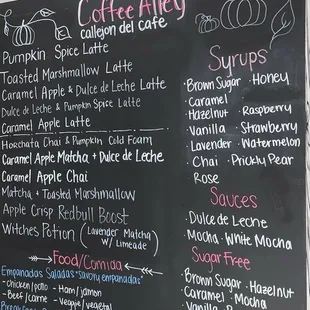 Coffee Alley
callejon del cafe
Pumpkin Spice Latte
Toasted Marshmallow Latte
Caramel Apple & Dulce de Leche Latte
Dulce de Leche & Pumpkin Spice Latte
Caramel Apple Latte
Horchata Chai & Pumpkin Cold Foam
Caramel Apple Matcha + Dulce de Leche
Caramel Apple Chai
Matcha + Toasted Marshmallow
Apple Crisp Redbull Boost
Witches Potion (Lavender Matcha
w/ Limeade)
Food/Comida
Empanadas Saladas "savory empanadas"
- Chicken/pollo - Ham/jamon
- Beef/carne - Veggie/vegetal
Syrups
· Brown Sugar · Honey
· Caramel
· Hazelnut · Raspberry
· Vanilla · Strawberry
· Lavender · Watermelon
· Chai · Prickly Pear
Rose
Sauces
· Dulce de Leche
· Mocha · White Mocha
Sugar Free
· Brown Sugar · Hazelnut
· Caramel · Mocha
· Vanilla